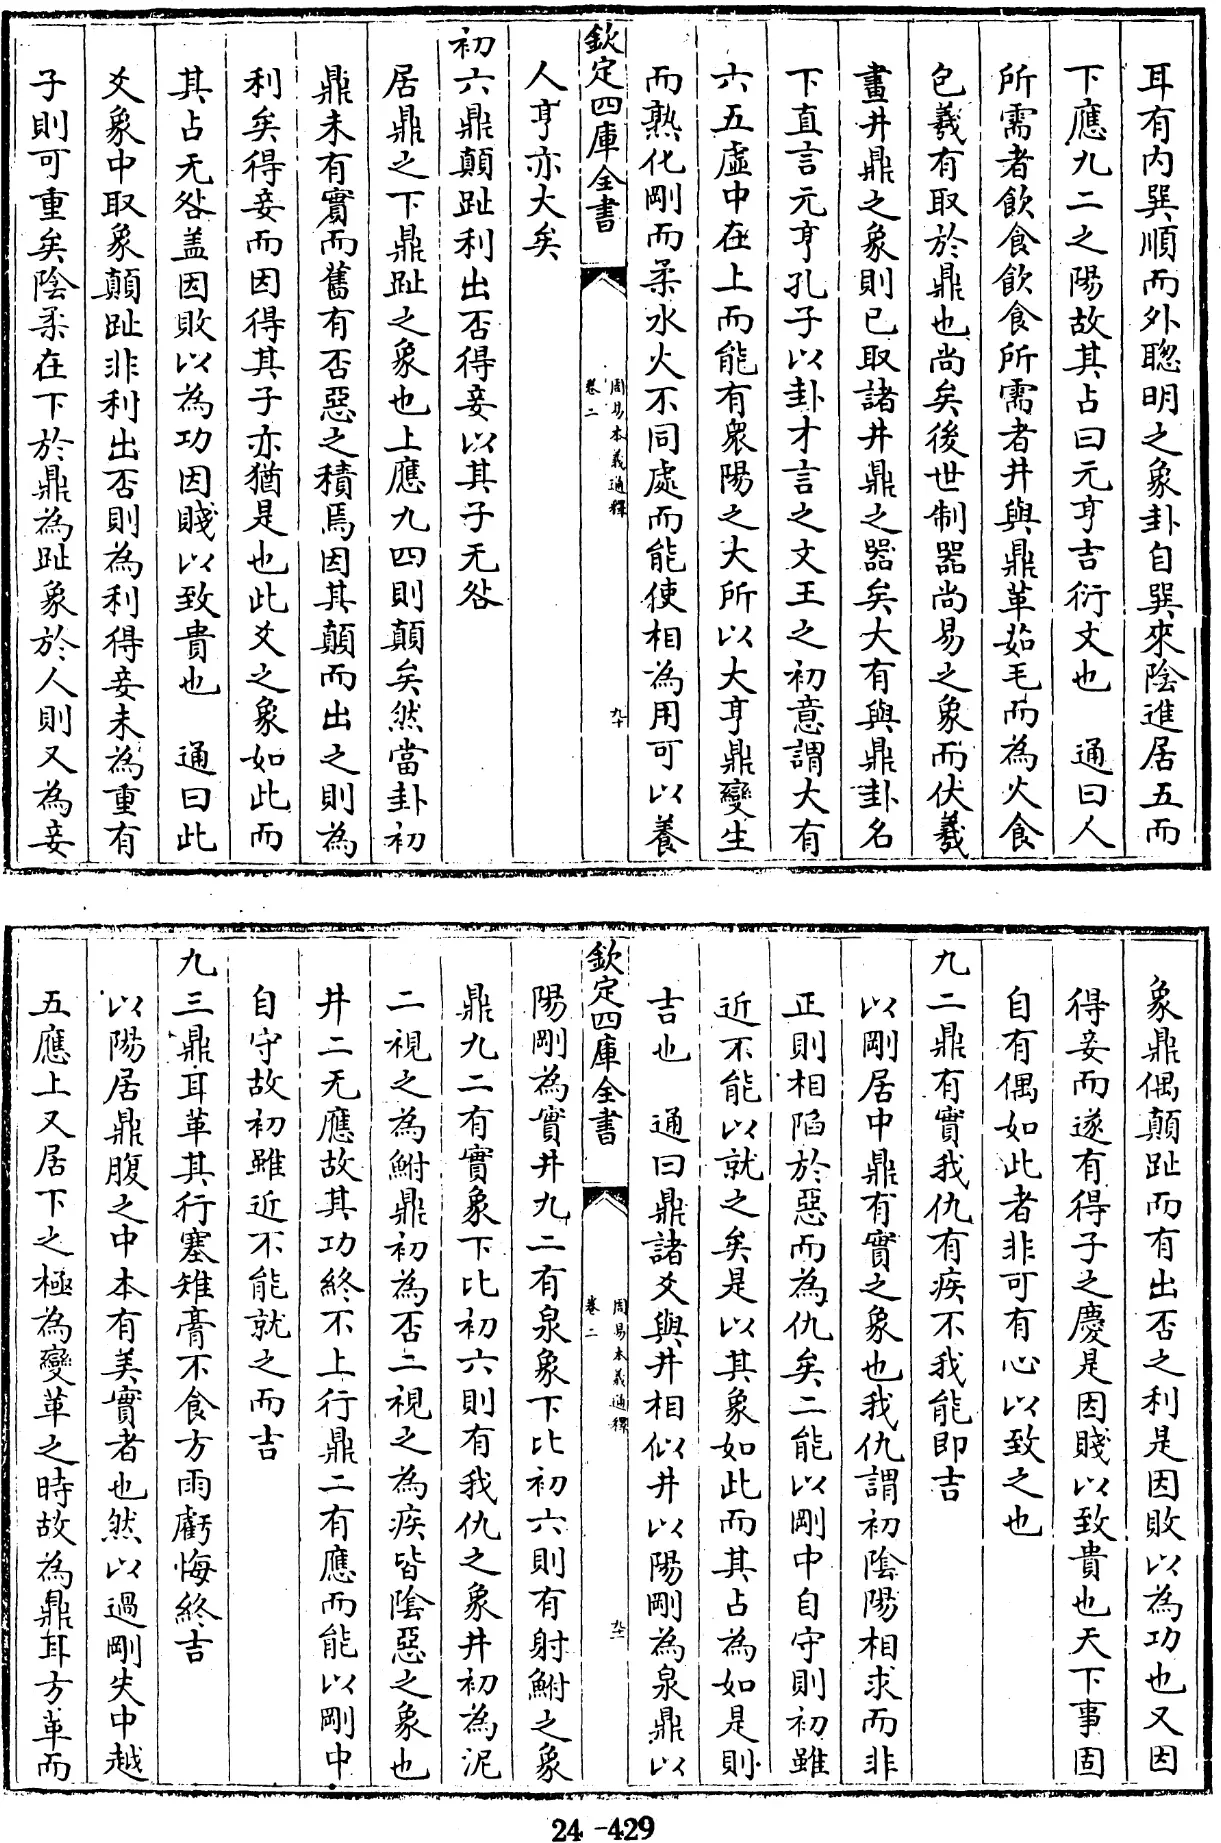 耳有内巽順而外聰明之象卦自巽來陰進居五而
下應九二之陽故其占曰元亨吉衍文也　通曰人
所需者飲食飲食所需者井與鼎革茹毛而為火食
包羲有取於鼎也尚矣後世制器尚易之象而伏羲
畫井鼎之象則已取諸井鼎之器矣大有與鼎卦名
下直言元亨孔子以卦才言之文王之初意謂大有
六五虛中在上而能有衆陽之大所以大亨鼎變生
而熟化剛而柔水火不同處而能使相為用可以養
欽定四庫全書
周易本義通釋
卷二
人亨亦大矣
初六鼎顛趾利出否得妾以其子无咎
居鼎之下鼎趾之象也上應九四則顛矣然當卦初
鼎未有實而舊有否惡之積焉因其顛而出之則為
利矣得妾而因得其子亦猶是也此爻之象如此而
其占无咎盖因敗以為功因賤以致貴也　通曰此
爻象中取象顛趾非利出否則為利得妾未為重有
子則可重矣陰柔在下於鼎為趾象於人則又為妾
象鼎偶顛趾而有出否之利是因敗以為功也又因
得妾而遂有得子之慶是因賤以致貴也天下事固
自有偶如此者非可有心以致之也
九二鼎有實我仇有疾不我能即吉
以剛居中鼎有實之象也我仇謂初陰陽相求而非
正則相陷於惡而為仇矣二能以剛中自守則初雖
近不能以就之矣是以其象如此而其占為如是則
吉也　通曰鼎諸爻與井相似井以陽剛為泉鼎以
欽定四庫全書
周易本義通釋
卷二
陽剛為實井九二有泉象下比初六則有射鮒之象
鼎九二有實象下比初六則有我仇之象井初為泥
二視之為鮒鼎初為否二視之為疾皆陰惡之象也
井二无應故其功終不上行鼎二有應而能以剛中
自守故初雖近不能就之而吉
九三鼎耳革其行塞雉膏不食方雨虧悔終吉
以陽居鼎腹之中本有美實者也然以過剛失中越
五應上又居下之極為變革之時故為鼎耳方革而
24-429